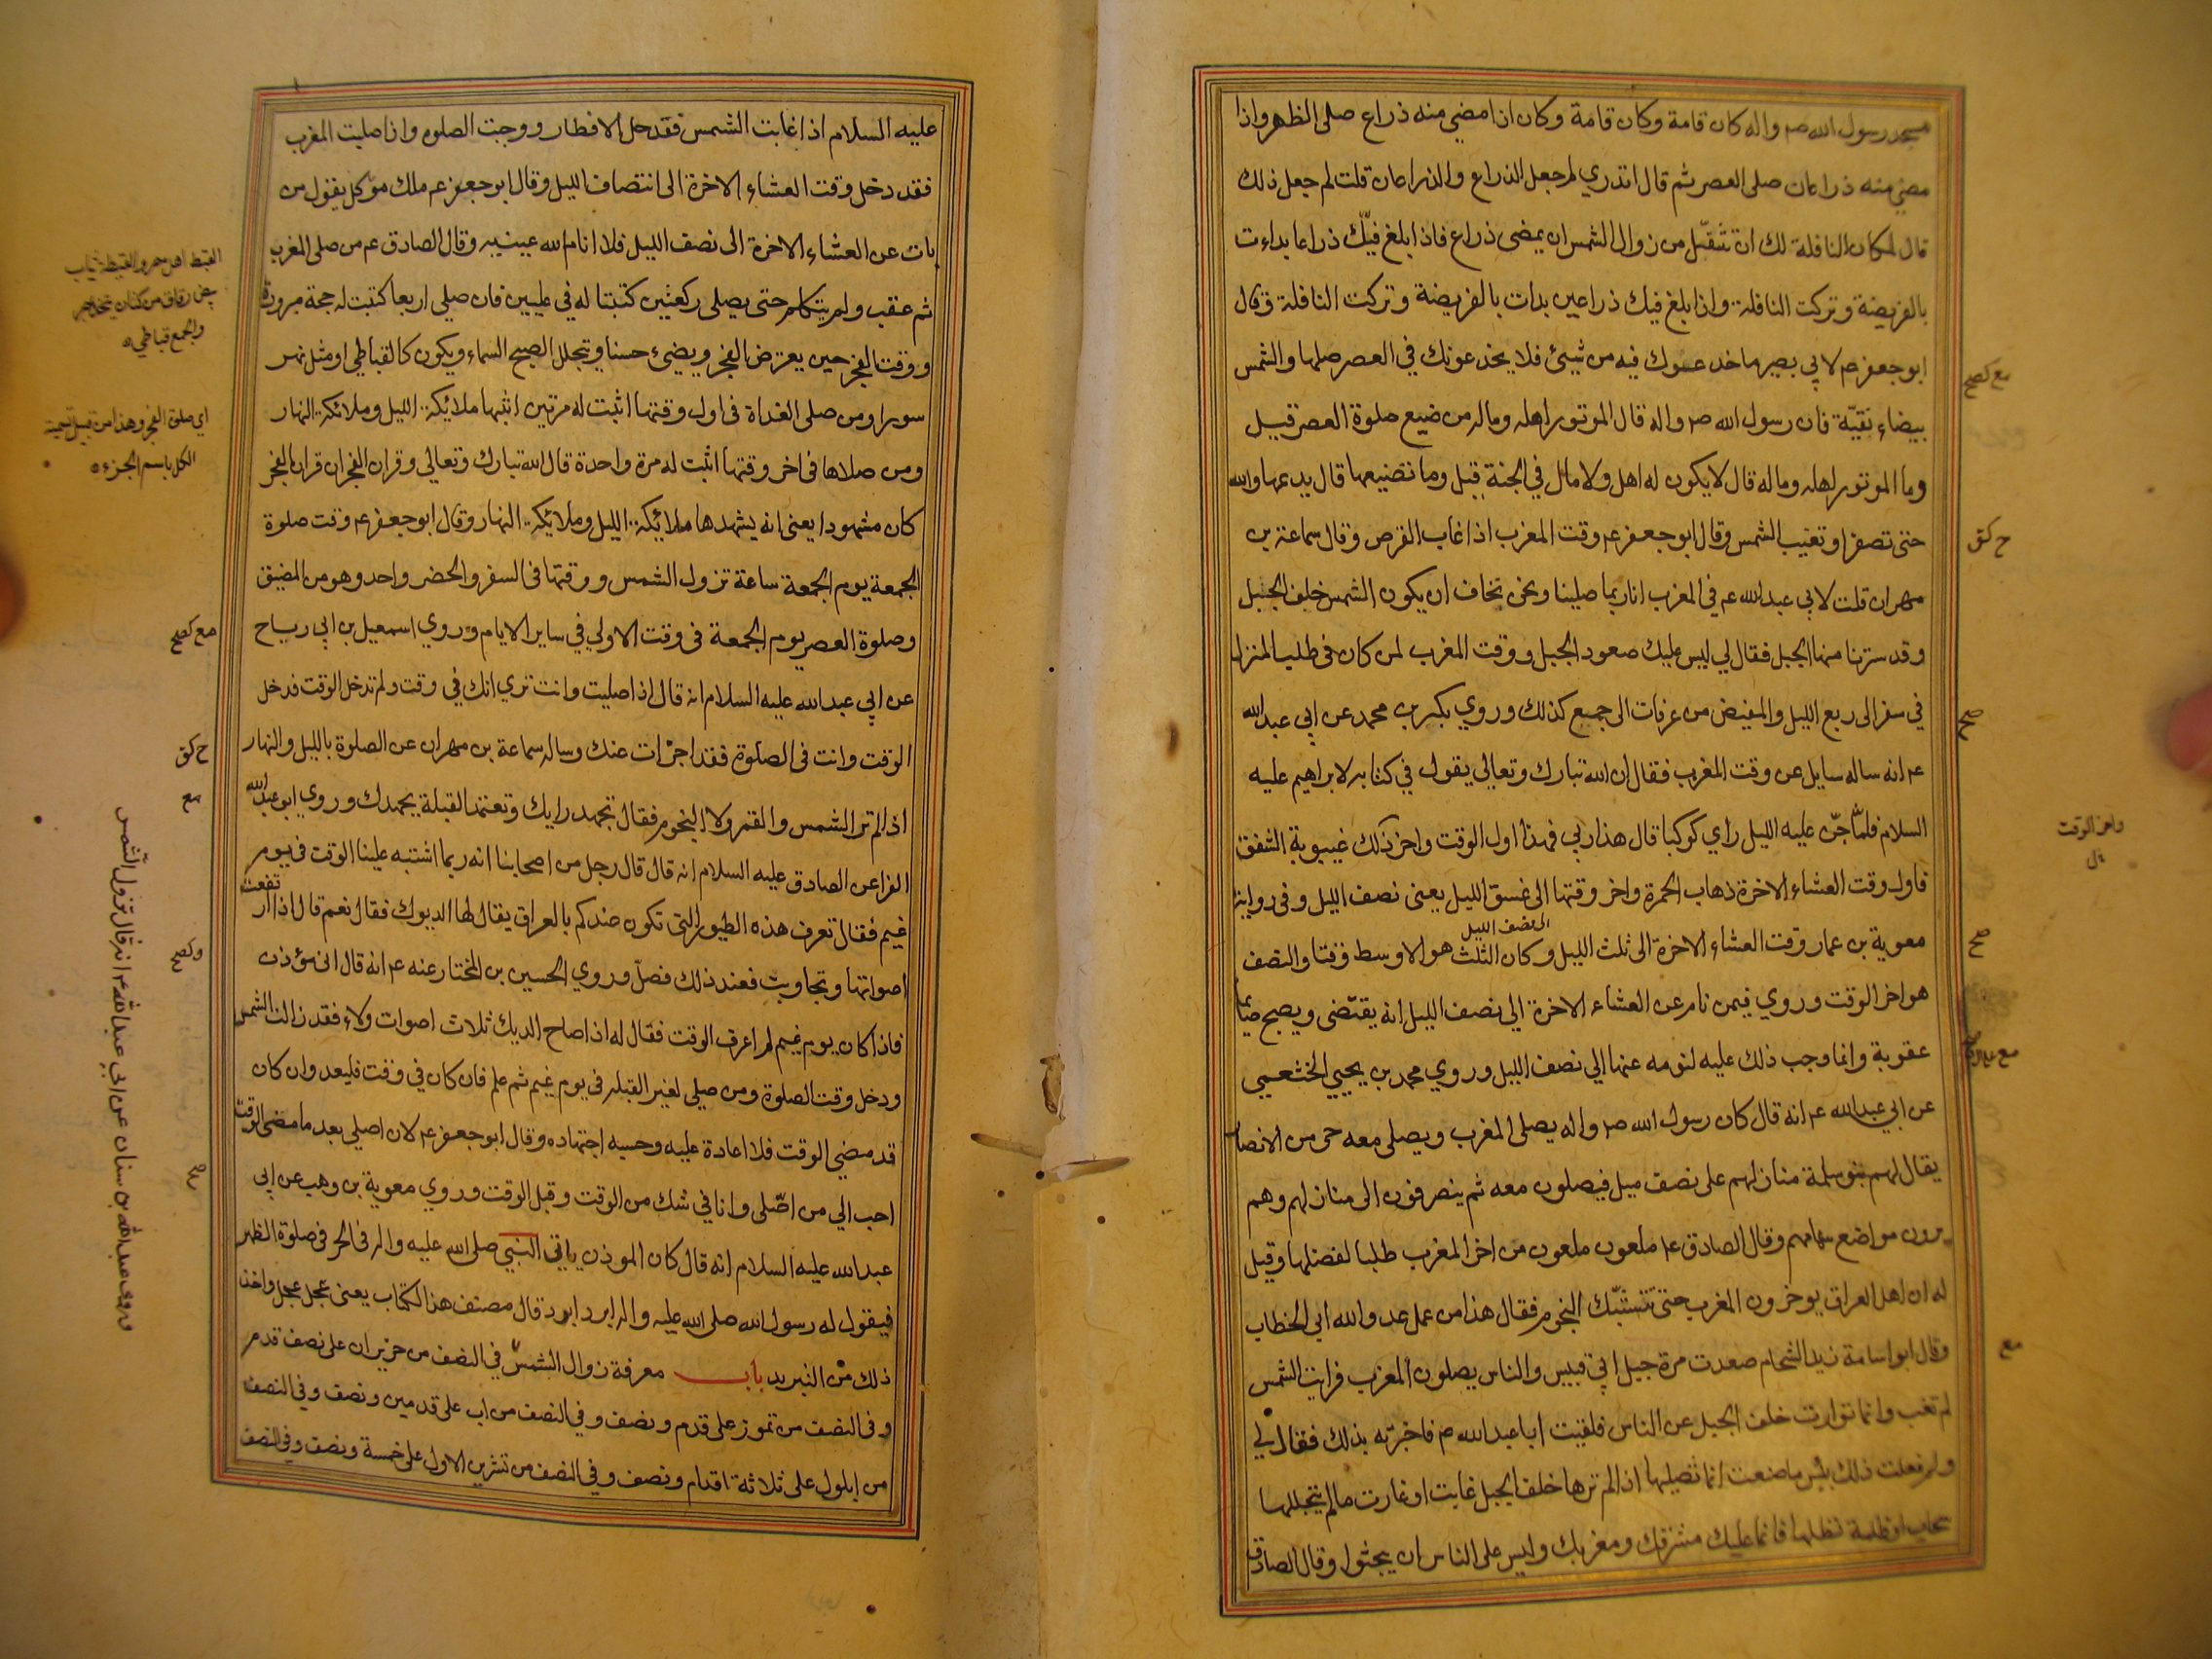 مسجد رسول الله ص واله كان قامة وكان قامة وكان اذا مضي منه ذراع صلى الظهر واذا
مضي منه ذراعان صلى العصر ثم قال اتدري لم جعل الذراع والذراعان قلت لم جعل ذلك
قال لمكان النافلة لك ان تتنفل من زوال الشمس ان يمضى ذراع فاذا بلغ فيّك ذراعا بداءت
بالفريضة وتركت النافلة واذا بلغ فيك ذراعين بدات بالفريضة وتركت النافلة وقال
ابو جعفر ع لابي بصير ما خدعوك فيه من شيئ فلا يخدعونك في العصر صلها والشمس
بيضاء نقيّة فان رسول الله ص واله قال الموتور اهله وماله من ضيع صلوة العصر قيل
وما الموتور اهله وماله قال لا يكون له اهل ولا مال في الجنة قيل وما تضييعها قال يدعها والله
حتى تصفر او تغيب الشمس وقال ابو جعفر ع وقت المغرب اذا غاب القرص وقال سماعة بن
مهران قلت لابي عبدالله ع في المغرب انا ربما صلينا ونحن نخاف ان يكون الشمس خلف الجبل
وقد سترنا منها الجبل فقال لي ليس عليك صعود الجبل ووقت المغرب لمن كان في طلب المنزل
في سفر الى ربع الليل والمفيض من عرفات الى جمع كذلك وروي بكر بن محمد عن ابي عبدالله
ع انه ساله سايل عن وقت المغرب فقال ان الله تبارك وتعالي يقول في كتابه لابراهيم عليه
السلام فلمّا جنّ عليه الليل راي كوكبا قال هذا ربي فهذا اول الوقت واخر ذلك غيبوبة الشفق
فاول وقت العشاء الاخرة ذهاب الحمرة واخر وقتها الى غسق الليل يعنى نصف الليل وفى رواية
الى نصف الليل
معوية بن عمار وقت العشاء الاخرة الى ثلث الليل وكان الثلث هو الاوسط وقتا والنصف
هو اخر الوقت وروي فيمن نام عن العشاء الاخرة الي نصف الليل انه يقتضى ويصبح صايما
عقوبة وانما وجب ذلك عليه لنومه عنها الي نصف الليل وروي محمد بن يحيي الخثعمي
عن ابي عبدالله ع انه قال كان رسول الله ص واله يصلى المغرب ويصلى معه حى من الانصار
يقال لهم بنو سلمة منازلهم على نصف ميل فيصلون معه ثم ينصرفون الى منازلهم وهم
يرون مواضع سهامهم وقال الصادق ع ملعون ملعون من اخر المغرب طلبا لفضلها وقيل
له ان اهل العراق يوخرون المغرب حتى تشتبك النجوم فقال هذا من عمل عدو الله ابي الخطاب
وقال ابو اسامة زيد الشحام صعدت مرة جبل ابي قبيس والناس يصلون المغرب فرايت الشمس
لم تغب وانما توارت خلف الجبل عن الناس فلقيت ابا عبدالله ع فاخبرته بذلك فقال لي
ولم فعلت ذلك بئس ما صنعت انما تصليها اذا لم ترها خلف الجبل غابت او غارت ما لم يتجللها
سحاب او ظلمة تظلها فانما عليك مشرقك ومغربك وليس على الناس ان يبحثوا وقال الصادق
مع كصح
ح كق
صح
واخر الوقت
صح
مع
عليه السلام اذا غابت الشمس فقد حل الافطار ووجبت الصلوه واذا صليت المغرب
فقد دخل وقت العشاء الاخرة الى انتصاف الليل وقال ابو جعفر ع ملك موكل يقول من
بات عن العشاء الاخرة الى نصف الليل فلا انام الله عينيه وقال الصادق ع من صلى المغرب
ثم عقب ولم يتكلم حتى يصلى ركعتين كتبتا له في عليين فان صلى اربعا كتبت له حجة مبرورة
ووقت الفجر حين يعترض الفجر ويضيئ حسنا ويتجلل الصبح السماء ويكون كالقباطي او مثل نهر
سورا ومن صلى الغداة فى اول وقتها اثبت له مرتين اثبها ملائكة الليل وملائكة النهار
ومن صلاها فى اخر وقتها اثبت له مرة واحدة قال الله تبارك وتعالي وقران الفجر ان قران الفجر
كان مشهودا يعنى انه يشهدها ملائيكة الليل وملائيكة النهار وقال ابو جعفر ع وقت صلوة
الجمعة يوم الجمعة ساعة تزول الشمس ووقتها فى السفر والحضر واحد وهو من المضيق
وصلوة العصر يوم الجمعة فى وقت الاولي في ساير الايام وروي اسمعيل بن ابي رباح
عن ابي عبدالله عليه السلام انه قال اذا صليت وانت تري انك في وقت ولم تدخل الوقت فدخل
الوقت وانت فى الصلوة فقد اجزات عنك وساله سماعة بن مهران عن الصلوة بالليل والنهار
اذا لم تر الشمس والقمر ولا النجوم فقال تجهد رايك وتعتمد القبلة بجهدك وروي ابو عبدالله
الفرا عن الصادق عليه السلام انه قال قال رجل من اصحابنا انه ربما اشتبه علينا الوقت في يوم
غيم فقال تعرف هذه الطيور التي تكون عندكم بالعراق يقال لها الديوك فقال نعم قال اذا ارتفعت
اصواتها وتجاوبت فعند ذلك فصلّ وروي الحسين بن المختار عنه ع انه قال اني مؤذن
فاذا كان يوم غيم لم اعرف الوقت فقال له اذا صاح الديك ثلاث اصوات ولاء فقد زالت الشمس
ودخل وقت الصلوة ومن صلى لغير القبله في يوم غيم ثم علم فان كان في وقت فليعد وان كان
قد مضي الوقت فلا اعادة عليه وحسبه اجتهاده وقال ابو جعفر ع لان اصلي بعد ما مضى الوقت
احب الي من اصّلى وانا في شك من الوقت وقبل الوقت وروي معوية بن وهب عن ابي
عبدالله عليه السلام انه قال كان الموذن ياتي النبي صلى الله عليه واله فى الحر فى صلوة الظهر
فيقول له رسول الله صلى الله عليه واله ابرد ابرد قال مصنف هذا الكتاب يعنى عجل عجل واخذ
ذلك من التبريد باب معرفة زوال الشمس في النصف من حزيران على نصف قدم
وفى النصف من تموز على قدم ونصف وفي النصف من اب على قدمين ونصف وفي النصف
من ايلول على ثلاثة اقدام ونصف وفي النصف من تشرين الاول على خمسة ونصف وفي النصف
القبط اهل مصر والقبطية ثياب
بيض رقاق من كتان يتخذ بمصر
والجمع قباطي
اي صلوة الفجر وهذا من قبيل تسمية
الكل باسم الجزء
مع كصح
ح كق
مع
وكصح
وروى عبدالله بن سنان عن ابي عبدالله ع انه قال تزول الشمس